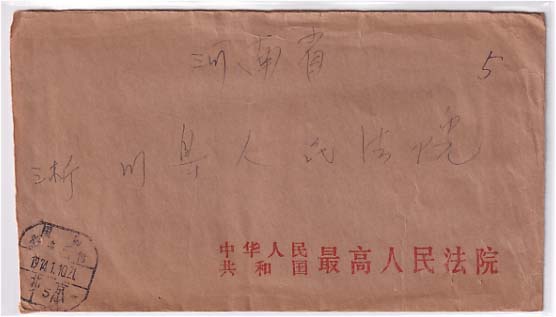 河南省
5
淅川县人民法院
中华人民
共和国 最高人民法院
1974.1.10.21
北京